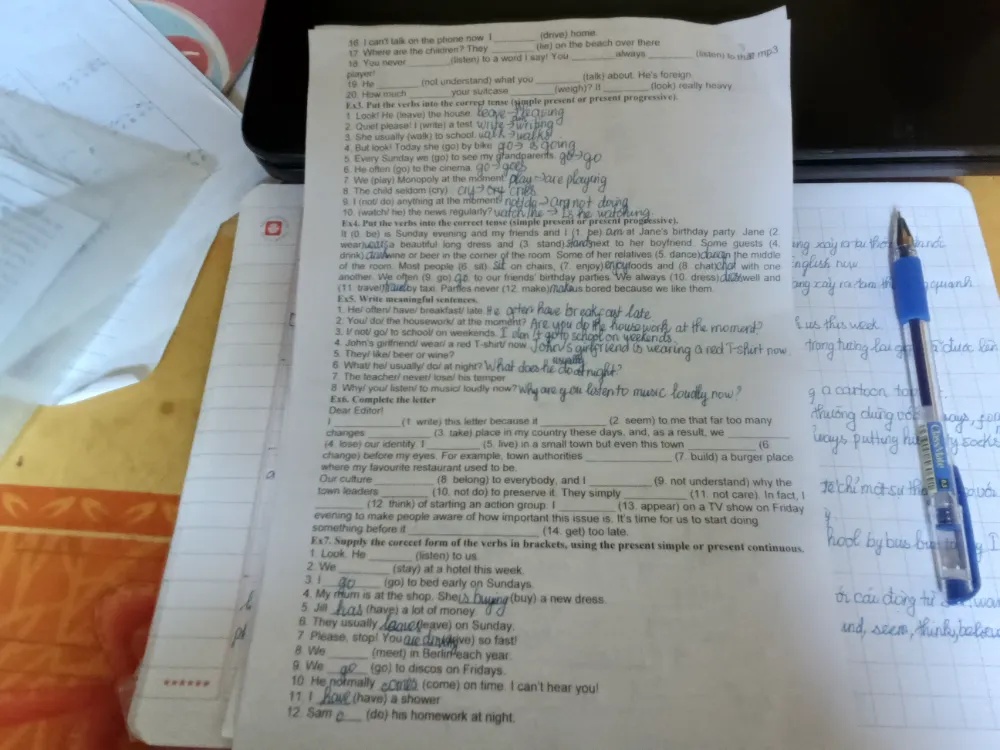 16. I can't talk on the phone now. I ________ (drive) home.
17. Where are the children? They ________ (lie) on the beach over there.
18. You never ________ (listen) to a word I say! You ________ always ________ (listen) to that mp3
player!
19. He ________ (not understand) what you ________ (talk) about. He's foreign.
20. How much ________ your suitcase ________ (weigh)? It ________ (look) really heavy.
Ex3. Put the verbs into the correct tense (simple present or present progressive).
1. Look! He (leave) the house. leave →
2. Quiet please! I (write) a test. write → writing
3. She usually (walk) to school. walk → walks
4. But look! Today she (go) by bike. go → is going
5. Every Sunday we (go) to see my grandparents. go → go
6. He often (go) to the cinema. go → goes
7. We (play) Monopoly at the moment. play → are playing
8. The child seldom (cry). cry → cries
9. I (not/ do) anything at the moment. not/do → not doing
10. (watch/ he) the news regularly? watch/he → Is he watching
Ex4. Put the verbs into the correct tense (simple present or present progressive).
It (0. be) is Sunday evening and my friends and I (1. be) am at Jane's birthday party. Jane (2.
wear) wears a beautiful long dress and (3. stand) stand next to her boyfriend. Some guests (4.
drink) wine or beer in the corner of the room. Some of her relatives (5. dance) in the middle
of the room. Most people (6. sit) sit on chairs, (7. enjoy) enjoy foods and (8. chat) chat with one
another. We often (9. go) go to our friends' birthday parties. We always (10. dress) well and
(11. travel) by taxi. Parties never (12. make) us bored because we like them.
Ex5. Write meaningful sentences.
1. He/ often/ have/ breakfast/ late. He often have breakfast late
2. You/ do/ the housework/ at the moment? Are you do the housework at the moment?
3. I/ not/ go/ to school/ on weekends. I don't go to school on weekends.
4. John's girlfriend/ wear/ a red T-shirt/ now. John's girlfriend is wearing a red T-shirt now.
5. They/ like/ beer or wine?
6. What/ he/ usually/ do/ at night? What does he usually do at night?
7. The teacher/ never/ lose/ his temper
8. Why/ you/ listen/ to music/ loudly now? Why are you listen to music loudly now?
Ex6. Complete the letter
Dear Editor!
I ________ (1. write) this letter because it ________ (2. seem) to me that far too many
changes ________ (3. take) place in my country these days, and, as a result, we ________
(4. lose) our identity. I ________ (5. live) in a small town but even this town ________ (6.
change) before my eyes. For example, town authorities ________ (7. build) a burger place
where my favourite restaurant used to be.
Our culture ________ (8. belong) to everybody, and I ________ (9. not understand) why the
town leaders ________ (10. not do) to preserve it. They simply ________ (11. not care). In fact, I
________ (12. think) of starting an action group. I ________ (13. appear) on a TV show on Friday
evening to make people aware of how important this issue is. It's time for us to start doing
something before it ________ (14. get) too late.
Ex7. Supply the correct form of the verbs in brackets, using the present simple or present continuous.
1. Look. He ________ (listen) to us.
2. We ________ (stay) at a hotel this week.
3. I go (go) to bed early on Sundays.
4. My mum is at the shop. She is buying (buy) a new dress.
5. Jill has (have) a lot of money.
6. They usually leave (leave) on Sunday.
7. Please, stop! You are (drive) so fast!
8. We ________ (meet) in Berlin each year.
9. We go (go) to discos on Fridays.
10. He normally comes (come) on time. I can't hear you!
11. I have (have) a shower
12. Sam ________ (do) his homework at night.
English now
us this week
trong tương lai
a cartoon
thường dùng
ways putting
hool by bus